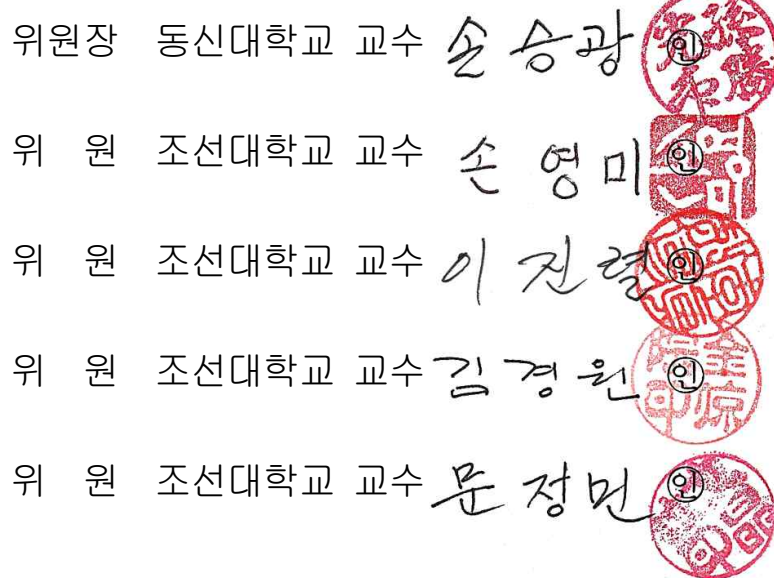 위원장 동신대학교 교수 손승광 ㊞
위 원 조선대학교 교수 손영미 ㊞
위 원 조선대학교 교수 이진렬 ㊞
위 원 조선대학교 교수 김경원 ㊞
위 원 조선대학교 교수 문정민 ㊞